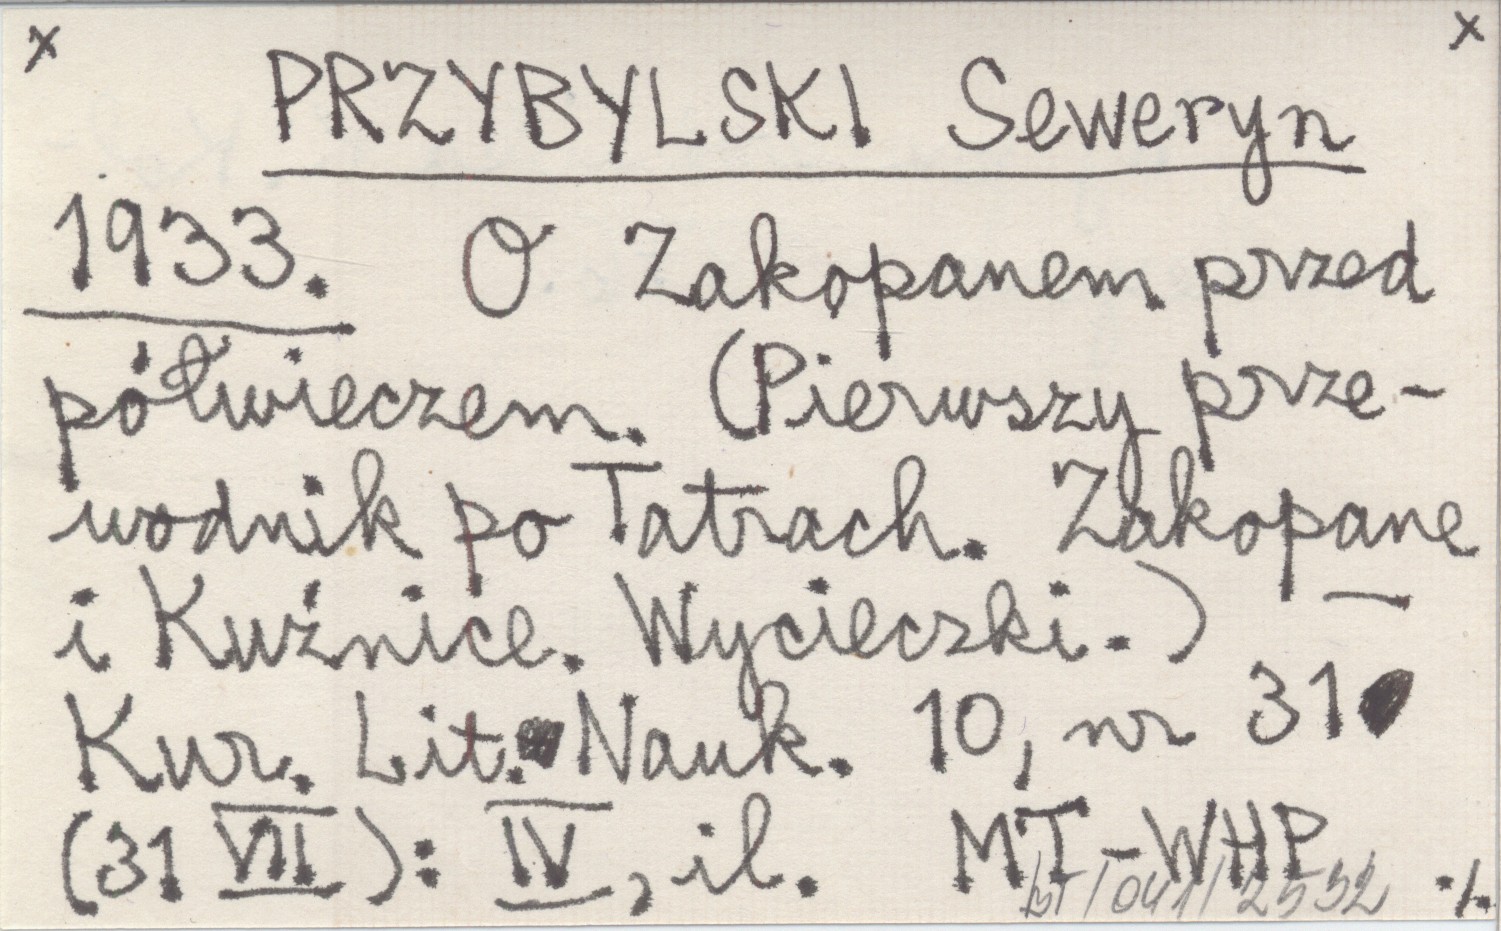 x x
PRZYBYLSKI Seweryn
1933. O Zakopanem przed
półwieczem. (Pierwszy prze-
wodnik po Tatrach. Zakopane
i Kuźnice. Wycieczki.) —
Kur. Lit. Nauk. 10, nr 31
(31 VII): IV, il. MT-WHP ./.